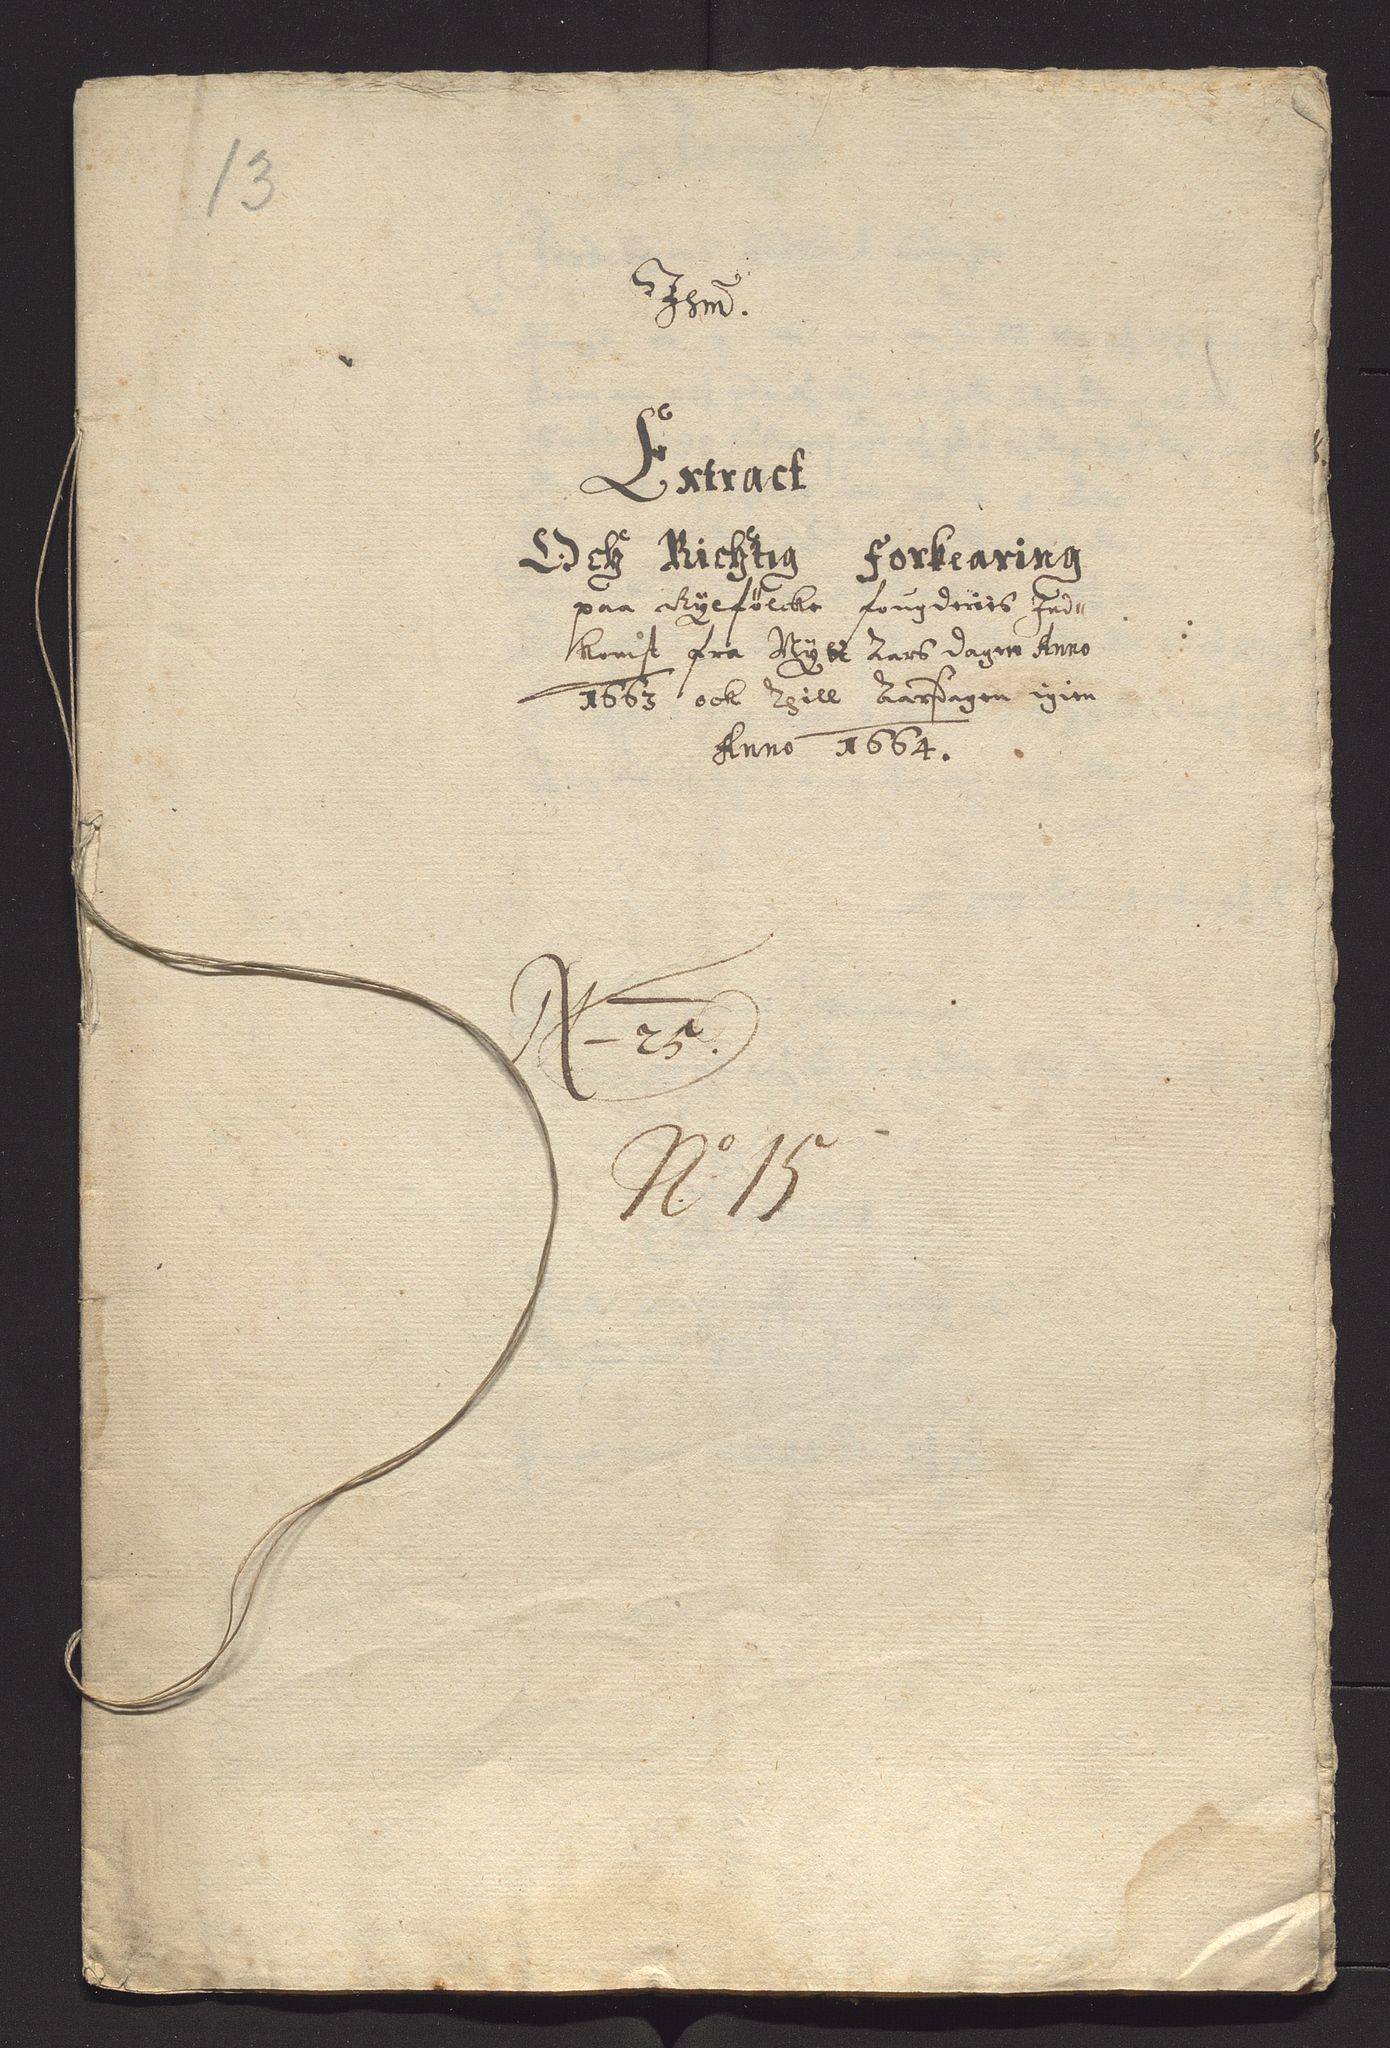 13
Ihm.
Extract
Och Richtig Forklaring
paa Ryefölcke fougderies Ind-
komst fra Nytt Aars dagen Anno
1663 och Thill Aarsdagen igien
Anno 1664.
N - 25.
No 15